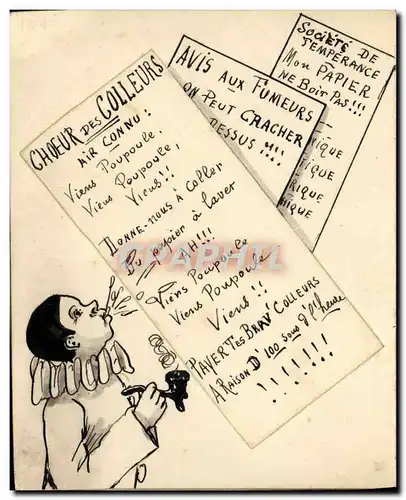 CHOEUR DES COLLEURS
AIR CONNU:
Viens Poupoule,
Viens Poupoule,
Viens!!
DONNE-NOUS À COLLER
Du papier à laver
AH!!!
Viens Poupoule
Viens Poupoule
Viens!!
PAYER TES BRAV' COLLEURS
A RAISON D 100 sous d' l'heure
!!!!!!!
AVIS AUX FUMEURS
ON PEUT CRACHER
DESSUS!!!!
SOCIÉTÉ DE
TEMPÉRANCE
MON PAPIER
NE BOIT PAS!!!
IQUE
IQUE
RIQUE
IQUE
CPAPHIL